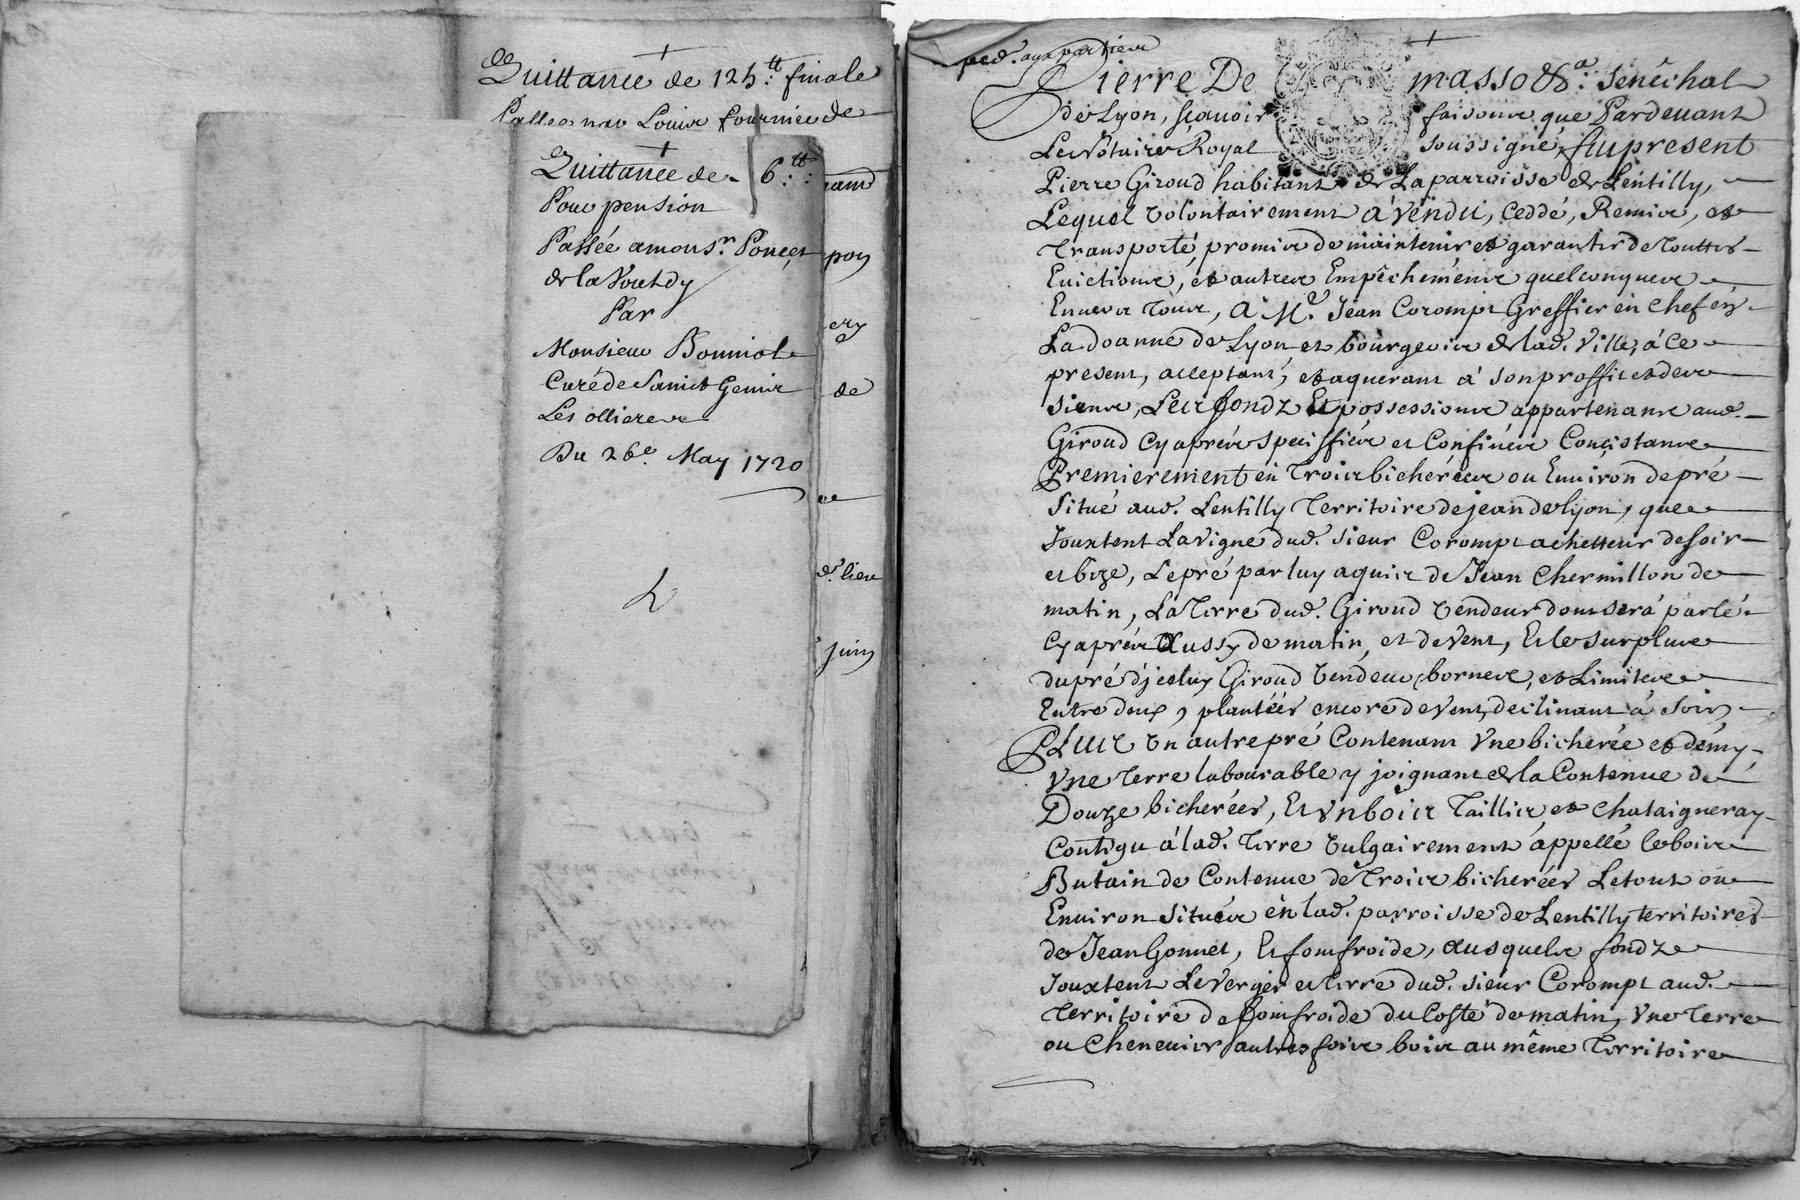 Quittance de 125.tt finale
Passée par Louis fournier de
Quittance de 6.tt
Pour pension
Passée a monsr. Poncet
de la Voutdy
Par
Monsieur Bonniol
Curé de Sainct Genis
Les ollieres
Du 26e. May 1720
pon
ery
de
de
d. lieu
juin
ped. aux parties
Pierre De masso &a. Senéchal
de Lyon, sçavoir faisons que Pardevant
Le Notaire Royal soussigné, fut present
Pierre Giroud habitant de La parroisse de Lentilly,
Lequel volontairement a vendu, ceddé, Remis, et
Transporté, promis de maintenir et garantir de Touttes
Evictions, et autres Empêchements quelconques
Envers Tous, A Mre. Jean Corompt Greffier en chef en
La doanne de Lyon et bourgeois de lad. Ville, à ce
present, acceptant, et aquerant à son proffit et des
siens, Les fondz Et possessions appartenants aud.
Giroud cy aprés speciffiés et Confinés Concistants
Premierement en Trois bicherées ou Environ de pré
Situé aud. Lentilly Territoire de jean de lyon, que
Jouxtent La vigne dud. sieur Corompt achetteur de soir
et bize, Le pré par luy aquis de Jean Chermillon de
matin, La Terre dud. Giroud vendeur dont sera parlé
Cy aprés Aussy de matin, et de vent, Et le surplus
du pré d'jceluy Giroud vendeur, bornes, et Limites
Entre deux, plantées encore de vent, declinant à soir,
PLUS Un autre pré Contenant Vne bicherée et demy,
Vne Terre labourable y joignant de la Contenue de
Douze bicherées, Et Vn bois Taillis, et chataigneray
Contigu à lad. Terre vulgairement appellé le bois
Butain de Contenue de Trois bicherées Le tout ou
Environ situés en lad. parroisse de Lentilly territoires
de Jean Gonnet, Et fomfroide, Ausquels fondz
Jouxtent Le Verger et Terre dud. sieur Corompt aud.
Territoire de fomfroide du Costé de matin, Vne Terre
ou Chenevier autres fois bois au même Territoire